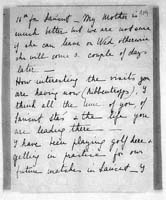 10th for Sancut – My Mother is
much better but we are not sure
if she can leave on Wed otherwise
she will come a couple of days
later –
How interesting the visits you
are having now (Ribbentrops). I
think all the time of you of
Sancut stas & the life you
are leading there –
I have been playing golf here &
getting in practice for our
future matches in Sancut – I